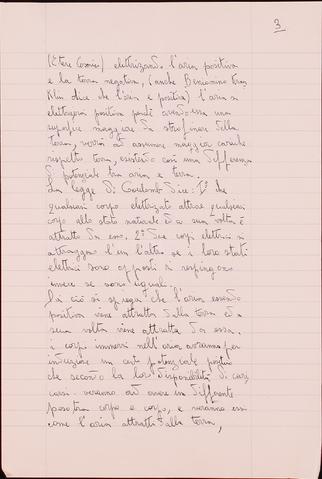 3
(Etere Cosmico) elettrizzando l'aria positiva
e la terra negativa, (anche Beniamino Fran
Klin dice che l'aria è positiva) l'aria si
elettrizza positiva perché avendo essa una
superfice maggiore da strofinare della
terra, verrà ad assumere maggior cariche
rispetto terra, esistendo così una differenza
di potenziale tra aria e terra.
La legge di Coulomb dice: 1° che
qualsiasi corpo elettrizzato attira qualsiasi
corpo allo stato naturale ed a sua volta è
attratto da esso. 2° Due corpi elettrici si
attraggono l'un l'altro se i loro stati
elettrici sono opposti si respingono
invece se sono uguali.
Da ciò si spiega che l'aria essendo
positiva viene attratta dalla terra ed a
sua volta viene attratta da essa.
i corpi immersi nell'aria avranno per
induzione un certo potenziale positivo
che secondo la loro disponibilità di cari
carsi verranno ad avere un differente
peso tra corpo e corpo, e verranno essi
come l'aria attratti dalla terra,